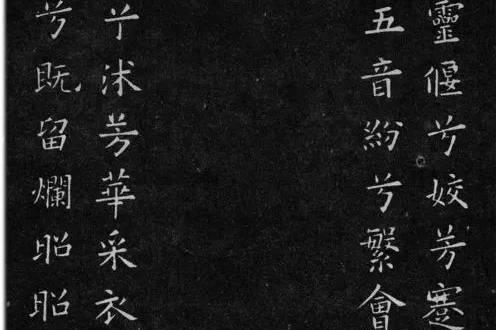 靈偃兮姣芳蹇
五音紛兮繁會
沐芳華采衣
兮既留爛昭昭